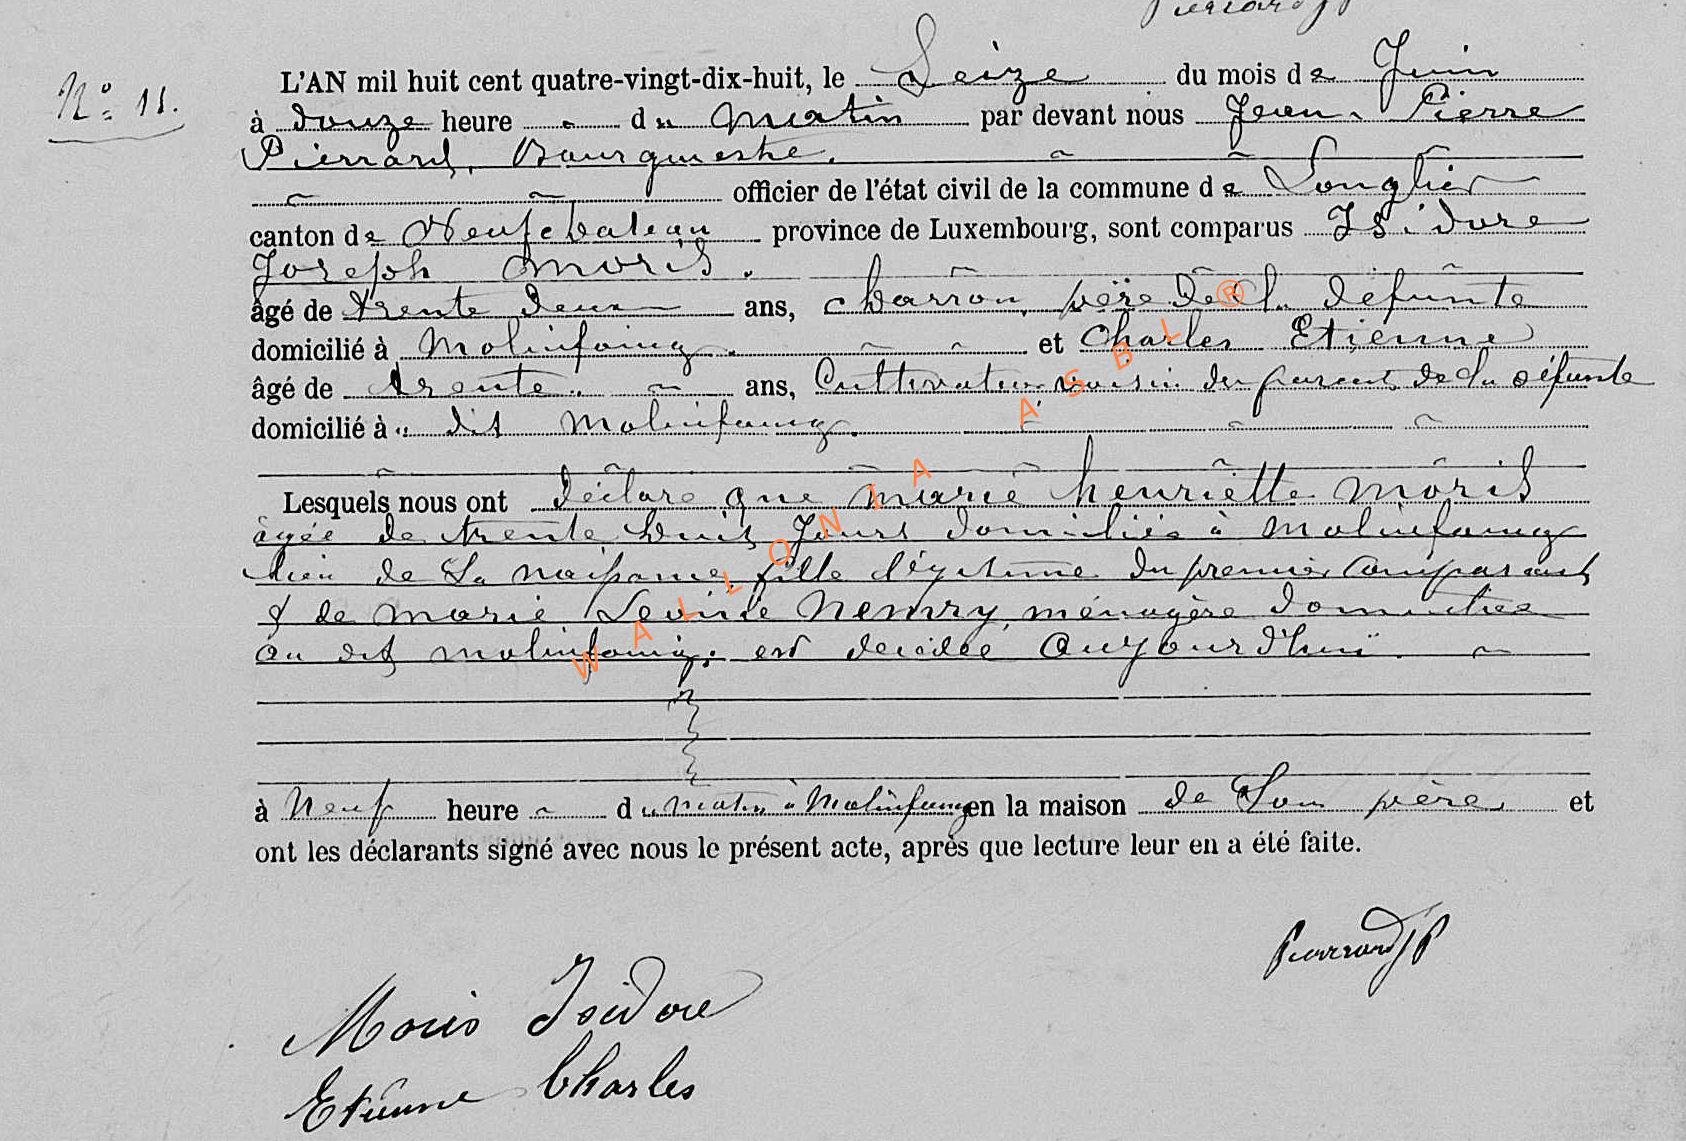 Pierrard JP
N° 11.
L'AN mil huit cent quatre-vingt-dix-huit, le Seize du mois de Juin
à douze heure du Matin par devant nous Jean Pierre
Pierrard, Bourgmestre.
officier de l'état civil de la commune de Longlier
canton de Neufchateau province de Luxembourg, sont comparus Isidore
Joseph Moris.
âgé de trente deux ans, charron, père de la défunte
domicilié à Molinfaing. et Charles Etienne
âgé de trente. ans, Cultivateur voisin du parent de la défunte
domicilié à dit Molinfaing.
Lesquels nous ont déclaré que marie henriette Moris
agée de trente huit Jours domiciliée à Molinfaing
lieu de Sa naissance, fille légitime du premier Comparant
& de marie Nemry, ménagère domiciliée
au dit molinfaing, est décédée aujourd'hui
à Neuf heure du matin à Molinfaing en la maison de Son père, et
ont les déclarants signé avec nous le présent acte, après que lecture leur en a été faite.
Pierrard JP
Moris Isidore
Etienne Charles
WALLONIA ASBL ®